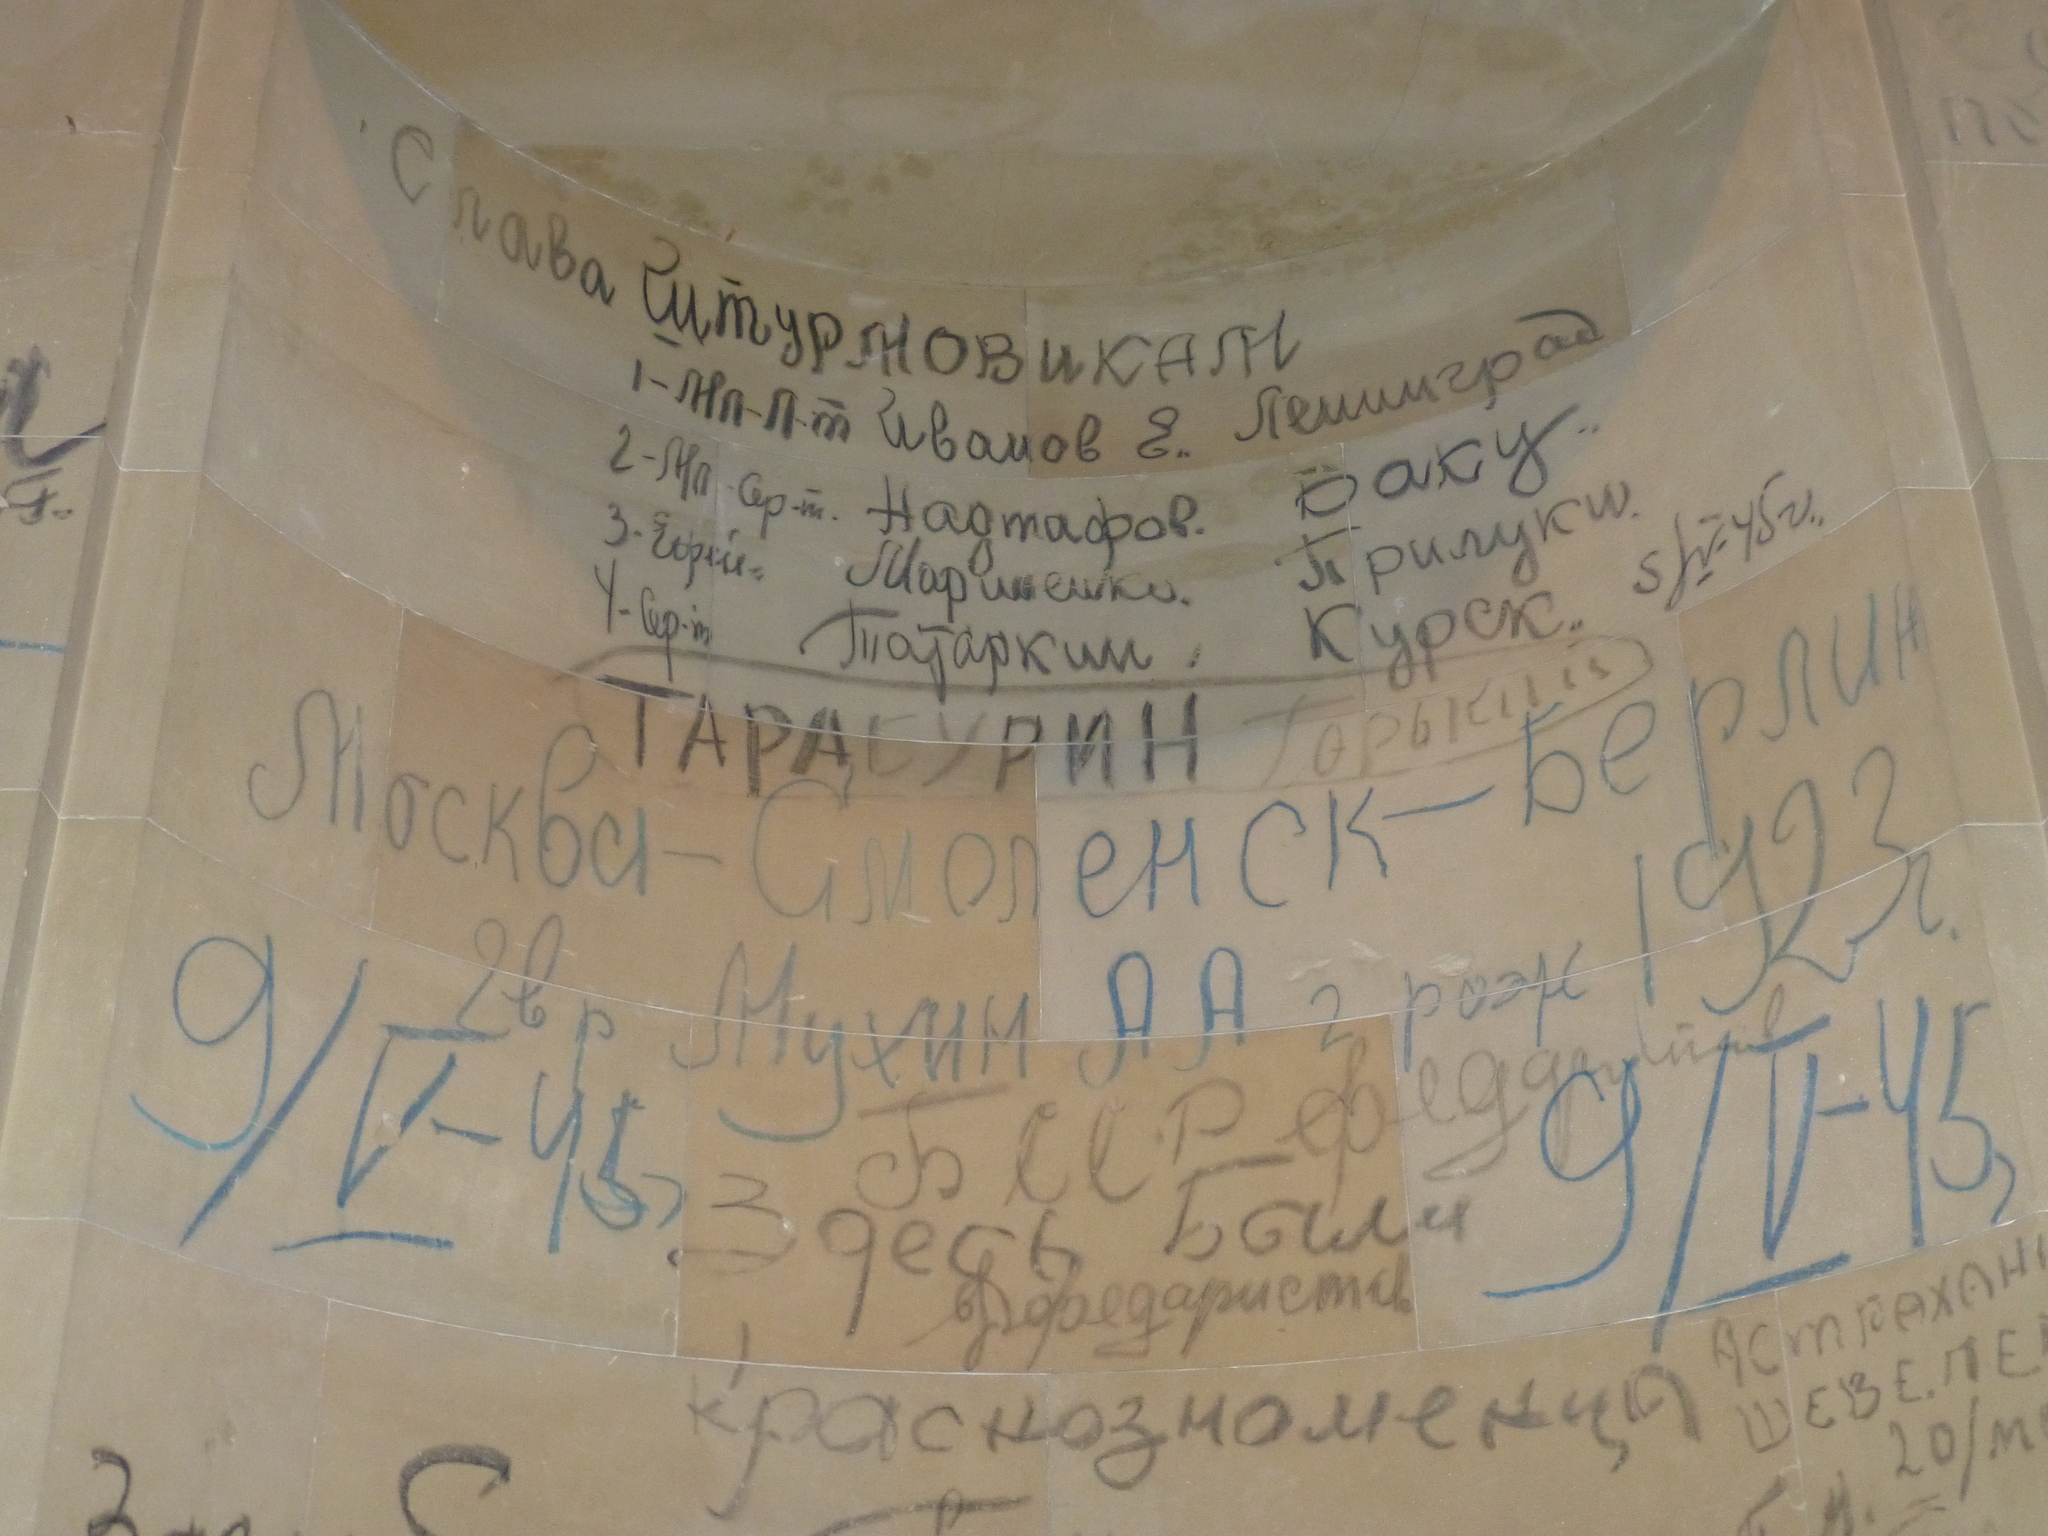 Слава Штурмовикам
1-Мл-Л-т Иванов Е. Ленинград
2-Мл-Сер-т. Надтафов. Баку..
3- Мариненко. Прилуки.
4-Сер-т Татаркин. Курск.. 5/V-45г..
ТАРАСУРИН Горький
Москва-Смоленск-Берлин
2вр Мухин АА г рож 1923г.
9/V-45г
9/V-45г
БССР
Здесь Были
Краснознаменцы
АСТРАХАН
ШЕВЕЛЕ
20/